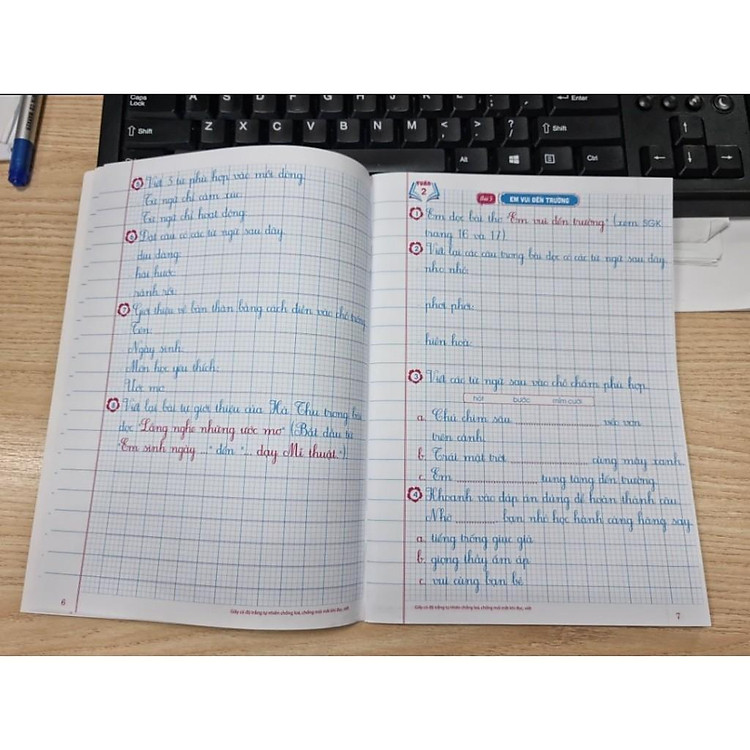 Caps Lock A S D F G H J K L : ; Enter
Shift Z X C V B N M < , > . ? / Shift
Alt Ctrl
5 Viết 3 từ phù hợp vào mỗi dòng.
Từ ngữ chỉ cảm xúc:
Từ ngữ chỉ hoạt động:
6 Đặt câu có các từ ngữ sau đây:
dịu dàng:
hài hước:
sành sỏi:
7 Giới thiệu về bản thân bằng cách điền vào chỗ trống.
Tên:
Ngày sinh:
Môn học yêu thích:
Ước mơ:
8 Viết lại bài tự giới thiệu của Hà Thu trong bài
đọc "Lắng nghe những ước mơ" (Bắt đầu từ
"Em sinh ngày ..." đến "... dạy Mĩ thuật.")
6
Giấy có độ trắng tự nhiên chống loá, chống mỏi mắt khi đọc, viết
TUẦN 2
Bài 3 EM VUI ĐẾN TRƯỜNG
1 Em đọc bài thơ "Em vui đến trường" (xem SGK
trang 16 và 17)
2 Viết lại các câu trong bài đọc có các từ ngữ sau đây:
nho nhỏ:
phơi phới:
hiền hoà:
3 Viết các từ ngữ sau vào chỗ chấm phù hợp.
hót bước mỉm cười
a. Chú chim sâu ............ véo von
trên cành.
b. Trái mặt trời ............ cùng mây xanh.
c. Em ............ tung tăng đến trường.
4 Khoanh vào đáp án đúng để hoàn thành câu.
Nhờ ......... bạn nhỏ học hành càng hăng say.
a. tiếng trống giục giã
b. giọng thầy ấm áp
c. vui cùng bạn bè
Giấy có độ trắng tự nhiên chống loá, chống mỏi mắt khi đọc, viết
7